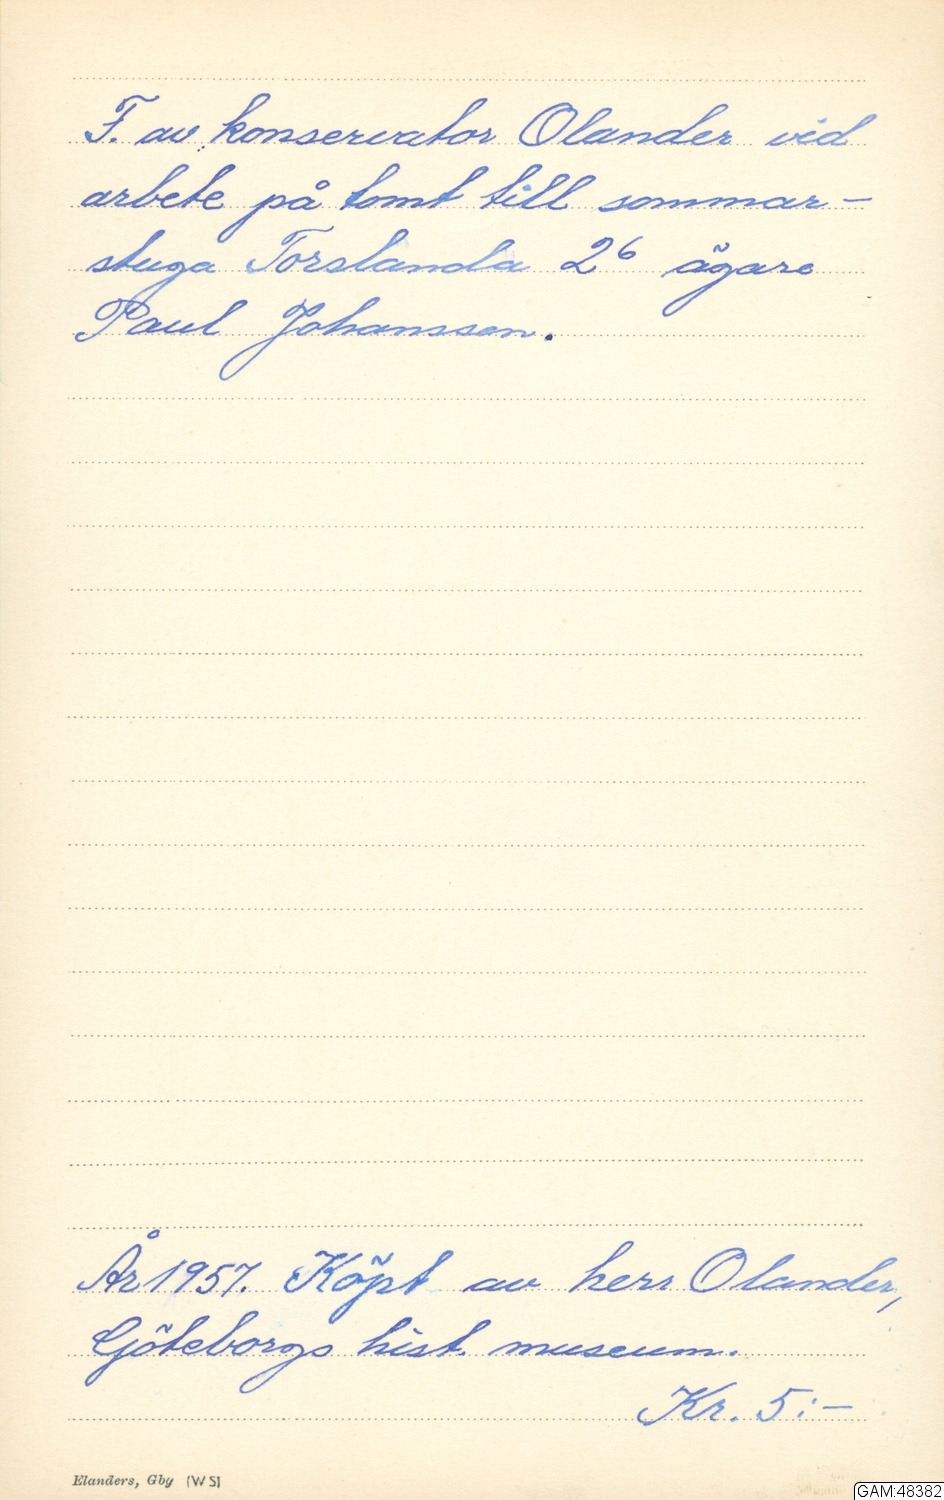 F. av konservator Olander vid
arbete på tomt till sommar-
stuga Torslanda 2⁶ ägare
Paul Johansson.
År 1957. Köpt av herr Olander,
Göteborgs hist. museum.
Kr. 5:-
Elanders, Gbg (WS)
GAM:48382